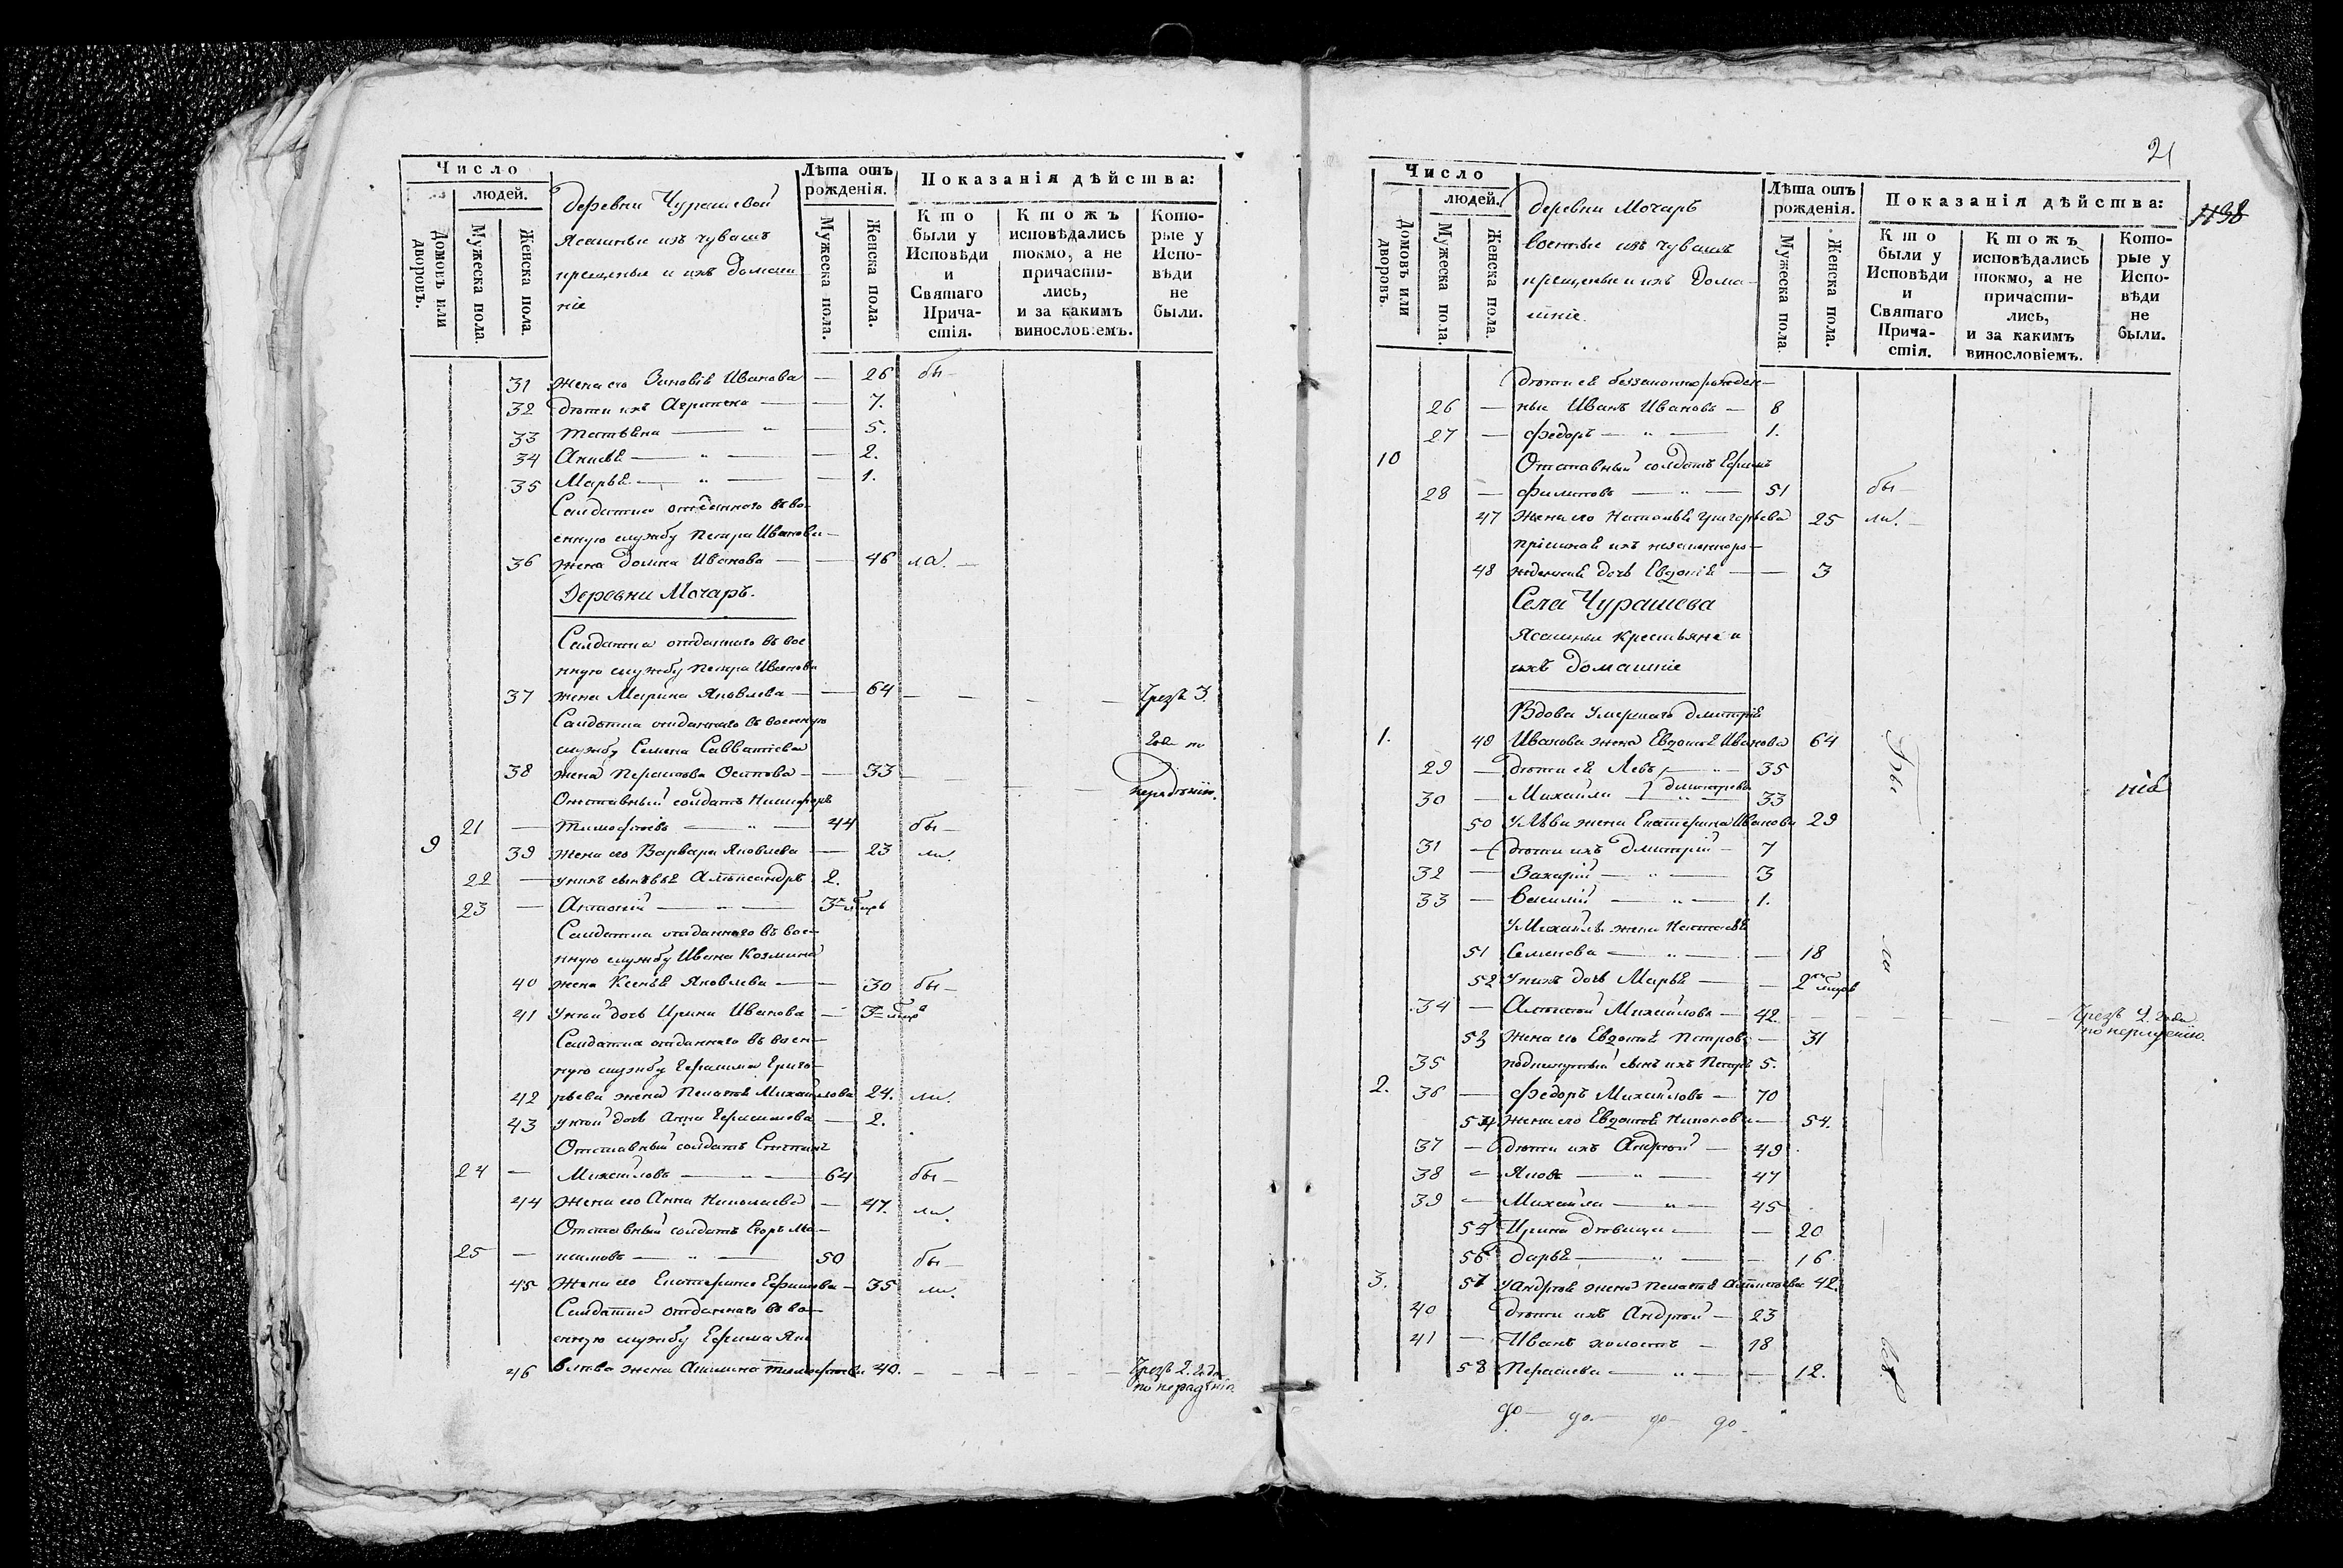 Число
людей.
Домовъ или дворовъ.
Мужеска пола.
Женска пола.
деревни Чурашевой
Ясашные изъ чувашъ
крещеные и ихъ домаш
ніе
Лѣта отъ рожденія.
Мужеска пола.
Женска пола.
Показанія дѣйства:
Кто были у Исповѣди и Святаго Прича-стія.
Ктожъ исповѣдались токмо, а не причасти-лись, и за какимъ винословіемъ.
Кото-рые у Испо-вѣди не были.
31 жена его Зиновія Иванова — 26 бы-
32 дѣти ихъ Агрипена — 7.
33 Татьяна — " — 5.
34 Анисья — " — 2.
35 Марья — " — 1.
Салдатка отданнаго въ во-
енную службу Петра Иванова
36 жена Домна Иванова — 46 ла.
Деревни Мочаръ.
Салдатка отданнаго въ вое
нную службу Петра Иванова
37 жена Марина Яковлева — 64 — Чрезъ 3.
Салдатка отданнаго въ военную
службу Семена Савватіева года по
38 жена Парасковья Осипова — 33 — нерадѣнію.
Отставный солдатъ Никифоръ
21 — Тимофѣевъ — " — 44 бы-
9 39 жена его Варвара Яковлева — 23 ли.
22 — у нихъ сыновья Александръ 2.
23 — Антоній — " — 3
Салдатка отданнаго въ вое-
нную службу Ивана Козмина
40 жена Ксенья Яковлева — 30 бы-
41 у ней дочь Ирина Иванова — 3
Салдатка отданнаго въ воен-
ную службу Герасима Григо-
42 рьева жена Пелагея Михайлова 24. ли.
43 у ней дочь Анна Герасимова — 2.
Отставный солдатъ Степанъ
24 — Михайловъ — " — 64 бы-
44 Жена его Анна Николаева — 47. ли.
Отставный солдатъ Егоръ Ма-
25 — ксимовъ — " — 50 бы-
45 Жена его Екатерина Ефимова — 35 ли.
Салдатка отданнаго въ во-
енную службу Ефима Яко
46 влева жена Акилина Тимофѣева 40. — Чрезъ 2. года
по нерадѣнію
21
1198
Число
людей.
Домовъ или дворовъ.
Мужеска пола.
Женска пола.
деревни Мочаръ
Военные изъ чувашъ
крещеные и ихъ дома-
шніе.
Лѣта отъ рожденія.
Мужеска пола.
Женска пола.
Показанія дѣйства:
Кто были у Исповѣди и Святаго Прича-стія.
Ктожъ исповѣдались токмо, а не причасти-лись, и за какимъ винословіемъ.
Кото-рые у Испо-вѣди не были.
дѣти ея беззаконнорожден-
26 — ные Иванъ Ивановъ — 8
27 — Федоръ — " — 1.
10 Отставный солдатъ Ефимъ
28 — Филиповъ — " — 51 бы-
47 Жена его Наталья Григорьева 25 ли.
незаконноро-
48 жденная дочь Евдокія — 3
Села Чурашева
Ясашные крестьяне и
ихъ домашніе
Вдова умершаго Дмитрія
1. 49 Иванова жена Евдокія Иванова 64 Бы
29 — дѣти ея Левъ — " — 35
30 — Михайла Дмитріевы — " — 33 нія
50 У Льва жена Екатерина Иванова 29
31 — дѣти ихъ Дмитрій — 7
32 — Захарій — " — 3
33 — Василій — " — 1.
У Михайлы жена Наталья
51 Семенова — " — 18 ли
52 У нихъ дочь Марья — 2
34 — Алексѣй Михайловъ — 42. — Чрезъ 2. года
по нерадѣнію.
53 Жена его Евдокія Петрова — 31
35 сынъ ихъ Петръ 5.
2. 36 — Федоръ Михайловъ — 70
54 Жена его Евдокія Никонова — 54.
37 — дѣти ихъ Андрей — 49
38 — Яковъ — " — 47
39 — Михайла — " — 45
55 Ирина дѣвица — 20
56 Дарья — " — 16
3. 57 У Андрея жена Пелагея Алексѣева 42.
40 дѣти ихъ Андрей — 23
41 — Иванъ холостъ — 18
58 Параскева — " — 12.
до — до — до — до